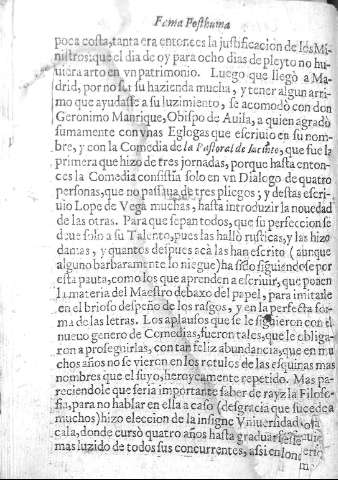 Fama Posthuma
poca costa, tanta era entonces la justificacion de los Mi-
nistros: que el dia de oy para ocho dias de pleyto no hu-
uiera arto en vn patrimonio. Luego que llegò a Ma-
drid, por no ser su hazienda mucha, y tener algun arri-
mo que ayudasse a su luzimiento, se acomodò con don
Geronimo Manrique, Obispo de Auila, a quien agradò
sumamente con vnas Eglogas que escriuio en su nom-
bre, y con la Comedia de la Pastoral de Iacinto, que fue la
primera que hizo de tres jornadas, porque hasta enton-
ces la Comedia consistia solo en vn Dialogo de quatro
personas, que no passaua de tres pliegos; y destas escri-
uio Lope de Vega muchas, hasta introduzir la nouedad
de las otras. Para que sepan todos, que su perfeccion se
deue solo a su Talento, pues las hallò rusticas, y las hizo
damas, y quantos despues acà las han escrito (aunque
alguno barbaramente lo niegue) ha sido siguiendose por
esta pauta, como los que aprenden a escriuir, que ponen
la materia del Maestro debaxo del papel, para imitarle
en el brioso despeño de los rasgos, y en la perfecta for-
ma de las letras. Los aplausos que se le siguieron con el
nueuo genero de Comedias, fueron tales, que le obliga-
ron a proseguirlas, con tan feliz abundancia, que en mu-
chos años no se vieron en los rotulos de las esquinas mas
nombres que el suyo, heroycamente repetido. Mas pa-
reciendole que seria importante saber de rayz la Filoso-
fia, para no hablar en ella a caso (desgracia que sucede a
muchos) hizo eleccion de la insigne Vniuersidad
cala, donde cursò quatro años hasta graduarse
mas luzido de todos sus concurrentes, assi en los